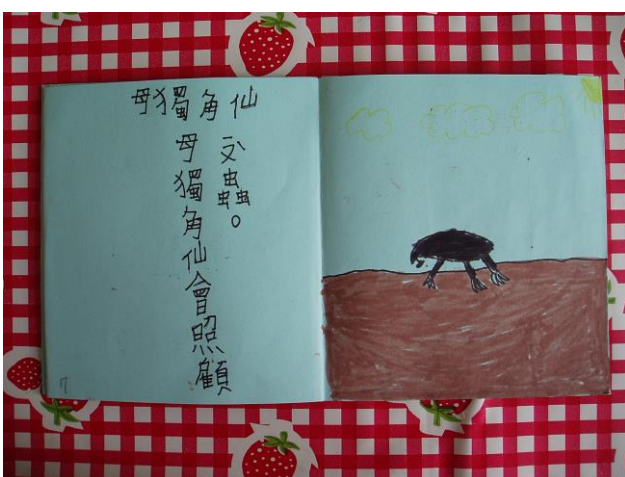 母獨角仙
母獨角仙會照顧
幼蟲。